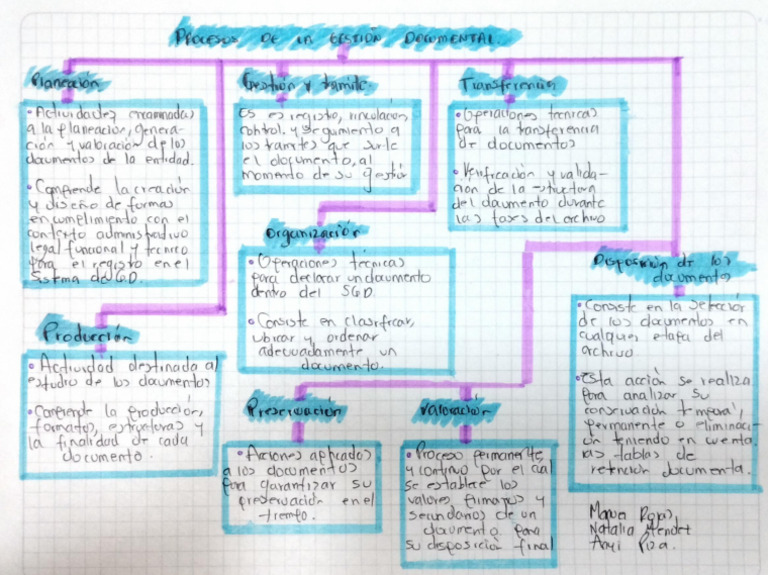 PROCESOS DE LA GESTIÓN DOCUMENTAL.
Planeación
• Actividades encaminadas
a la planeación, genera-
ción y valoración de los
documentos de la entidad.
• Comprende la creación
y diseño de formas
en cumplimiento con el
contexto administrativo
legal funcional y tecnico
para el registo en el
Sistema de GD.
Gestión y tramite.
Es es registo, vinculación
control y seguimiento a
los tramites que surte
el documento, al
momento de su gestión
Transferencia
• Operaciones tecnicas
para la transferencia
de documentos
• Verificación y valida-
cion de la estructura
del documento durante
las fases del archivo
Organización
• Operaciones técnicas
para declarar un documento
dentro del SGD.
• Consiste en clasificar,
ubicar y ordenar
adecuadamente un
documento.
Disposición de los
documentos
• Consiste en la selección
de los documentos en
cualquier etapa del
archivo
• Esta acción se realiza
para analizar su
conservación temporal,
permanente o eliminaci-
ón teniendo en cuenta
las tablas de
retención documental.
Producción
• Actividad destinada al
estudio de los documentos
• Comprende la producción,
formatos, estructuras y
la finalidad de cada
documento.
Preservación
• Acciones aplicados
a los documentos
para garantizar su
preservación en el
tiempo.
Valoración
• Proceso permanente
y continuo por el cual
se establece los
valores primarios y
secundarios de un
documento para
su disposición final
Rojas
Natalia Mendez